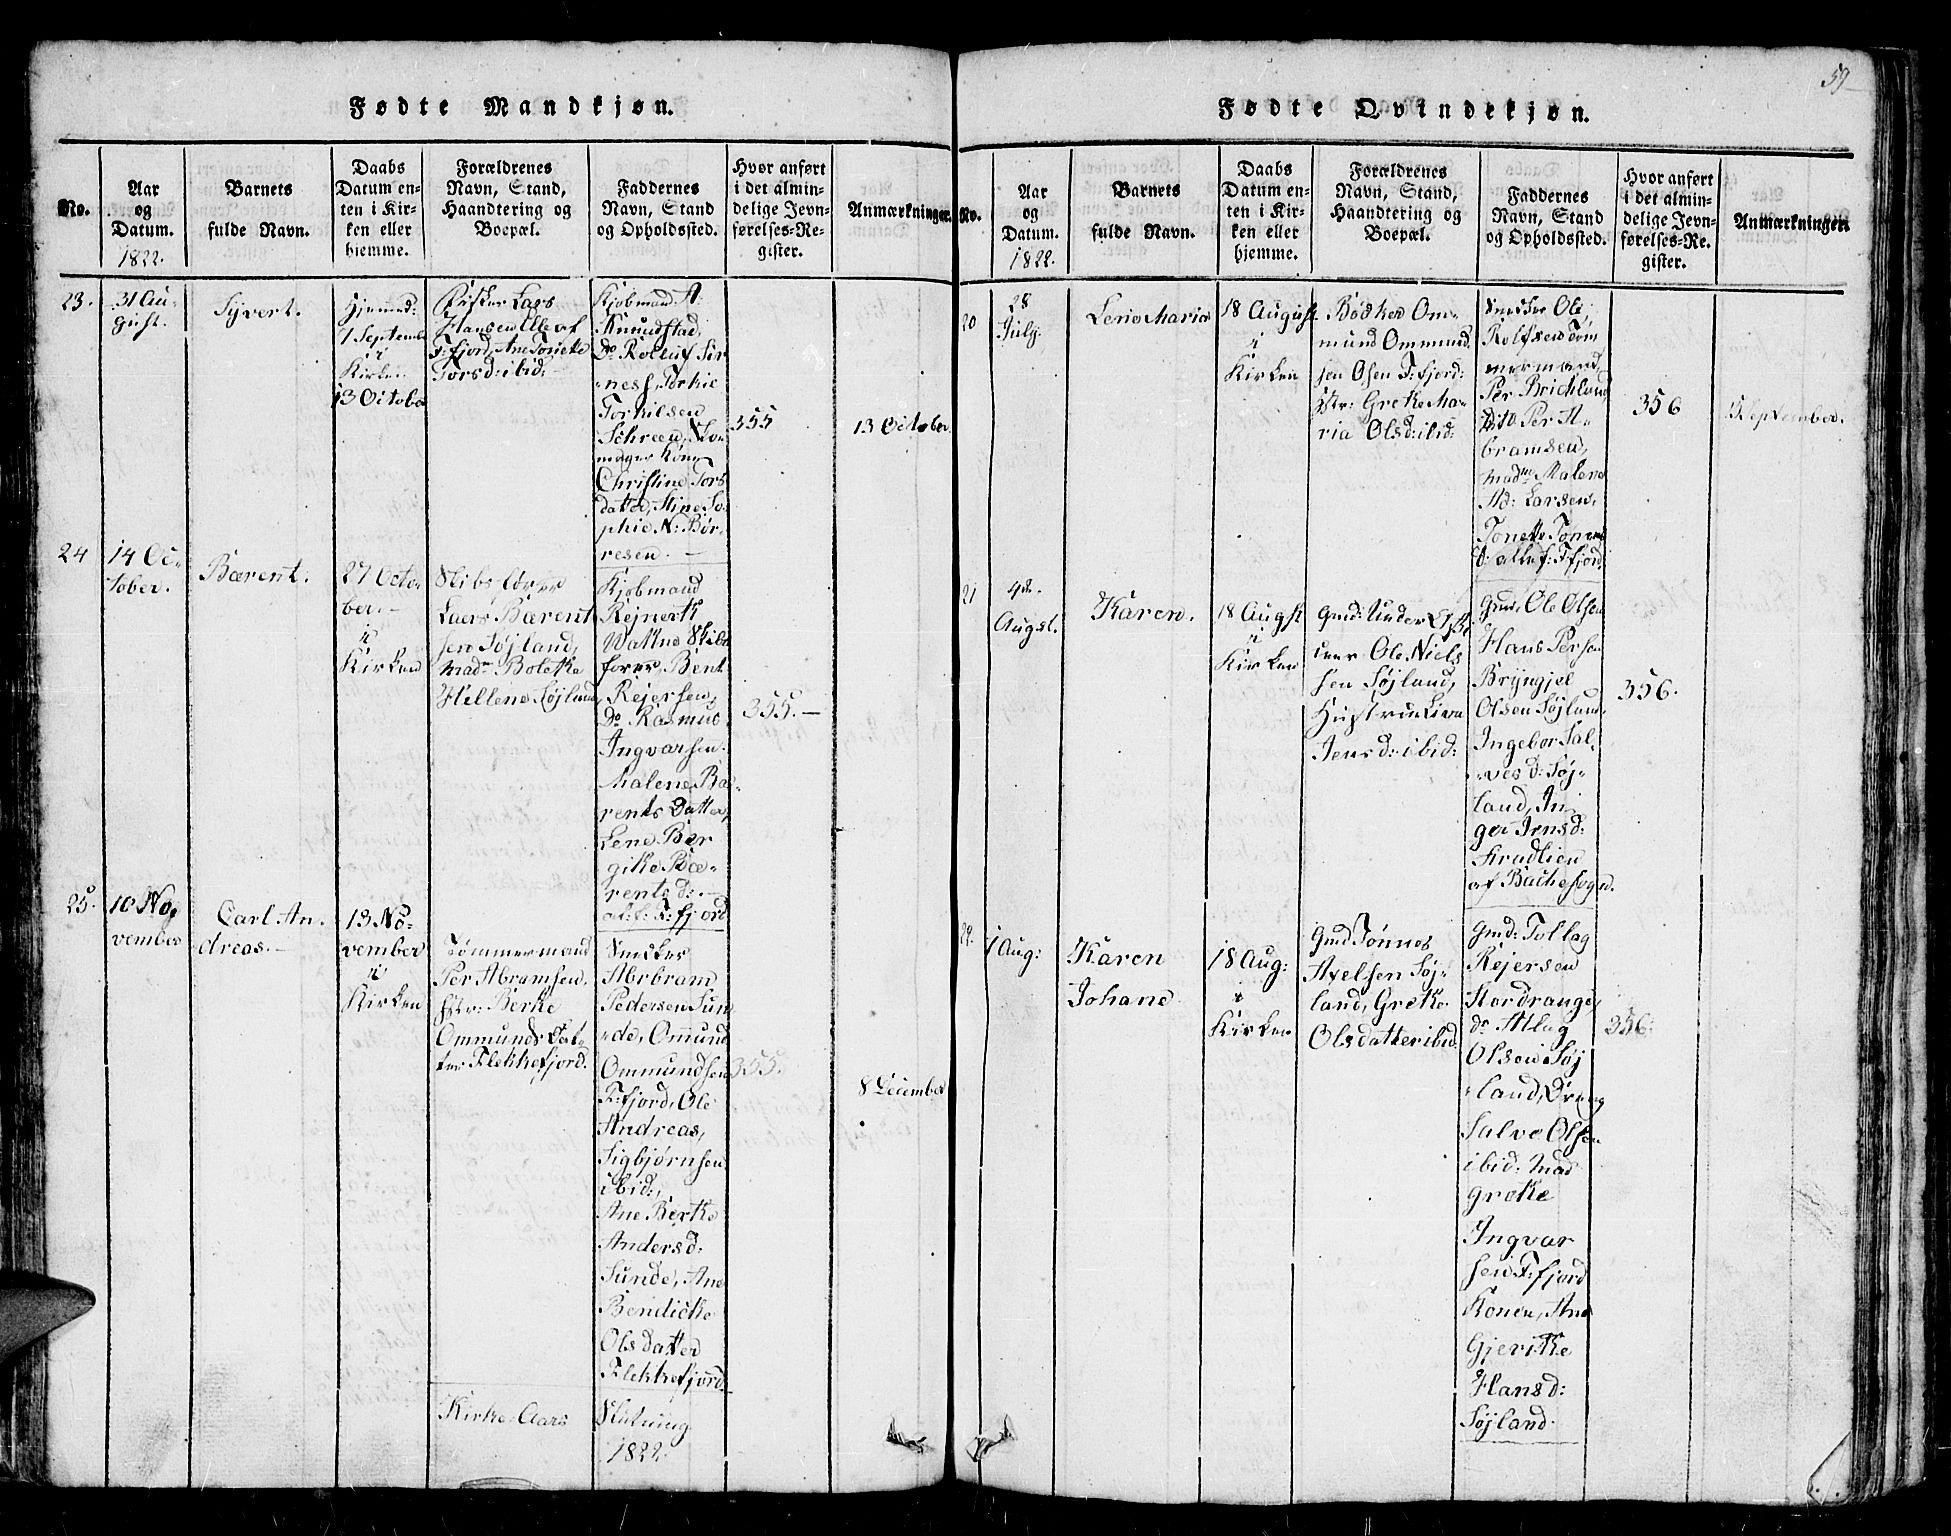 59
Fødte Mandkjøn.
No.
Aar
og
Datum.
1822.
Barnets
fulde Navn.
Daabs
Datum en-
ten i Kir-
ken eller
hjemme.
Forældrenes
Navn, Stand,
Haandtering og
Boepæl.
Faddernes
Navn, Stand
og Opholdssted.
Hvor anført
i det almin-
delige Jevn-
førelses-Re-
gister.
Anmærkninger.
23.
31 Au-
gust.
Syvert.
Hjemmed:
1 Septembe
i
Kirken
13 October
Lars
Hansen
F:fjord, Ane Tonette
Torsd: ibid:
Kjøbmand A:
Knudstad,
Do Rolluf Sir
ness, Torkie
Torkilsen
Schreen,
Kone
Christine Tors
datter, Stine So-
phie N: Bør-
resen.
355
13 October.
24
14 Oc-
tober.
Bærent.
27 Octo-
ber.-
i
Kirken
Skibsfører
Laers Bærent
sen Søjland,
mad. Bolette
Hellene Søjland
Kjøbmand
Rejnert
Watne Skibs
fører, Bent
Rejersen,
Do Rasmus
Ingvarsen.
Malene Bæ-
rents Datter,
Lene Ber
gitte Bæ-
rents d:
al: f: F:fjord
355.-
25.
10 No,
vember
Carl An,
dreas.-
13 No-
vember
i
Kirken
Tømmermand
Per Abramsen,
Hstr: Berte
Ommunds Dat-
ter Flekkefjord.
Snedker
Abrbram
Pedersen Sun
de, Ommund
Ommundsen
F:fjord, Ole
Andreas,
Sigbjørnsen
ibid:,
Ane Berte
Anders d:
Sunde, Ane
Bendicte
Olsdatter
Flekkefjord.
355.
8 December
Kirke-Aars
Slutning
1822.
Fødte Qvindekjøn.
No.
Aar
og
Datum.
1822.
Barnets
fulde Navn.
Daabs
Datum en-
ten i Kir-
ken eller
hjemme.
Forældrenes
Navn, Stand,
Haandtering og
Boepæl.
Faddernes
Navn, Stand
og Opholdssted.
Hvor anført
i det almin-
delige Jevn-
førelses-Re-
gister.
Anmærkninger.
20
28
July
Lene Maria
18 August
i
Kirken
Bødker Om-
mund Ommund
sen Olsen F:fjord:
Hstr: Grete Ma-
ria Olsd: ibid:
Snedker Ole,
Rolfsen Tøm
mermand,
Per Brichland
Dito Per A-
bramsen,
Malene
Ad: Larsen,
Tonette Tønnes
D: alle f: F:fjord
356
September.
21
4de
Augst.
Karen.
18 Augst
i
Kirken
Gmd: Under
Ole Niels
sen Søjland,
Hustrue
Jens d: ibid:
Gmd: Ole Olsen
Hans Persen
Bryngjel
Olsen Søjland.
Ingebor Sal-
ves d: Søj-
land, In,
ger Jensd:
af Bachesogn.
356.
22.
1 Aug:
Karen
Johane
18 Aug:
i
Kirken
Gmd Tønnes
Axelsen Søj-
land, Grete
Olsdatter ibid
Gmd: Tollag
Rejersen
Stordrange,
do Atlag
Olsen Søj
land, Dreng
Salve Olsen
ibid: Mad
Grete
Ingvar
sen F:fjord
Konen, Ane
Gjeritte
Hans d:
Søjland.
356.